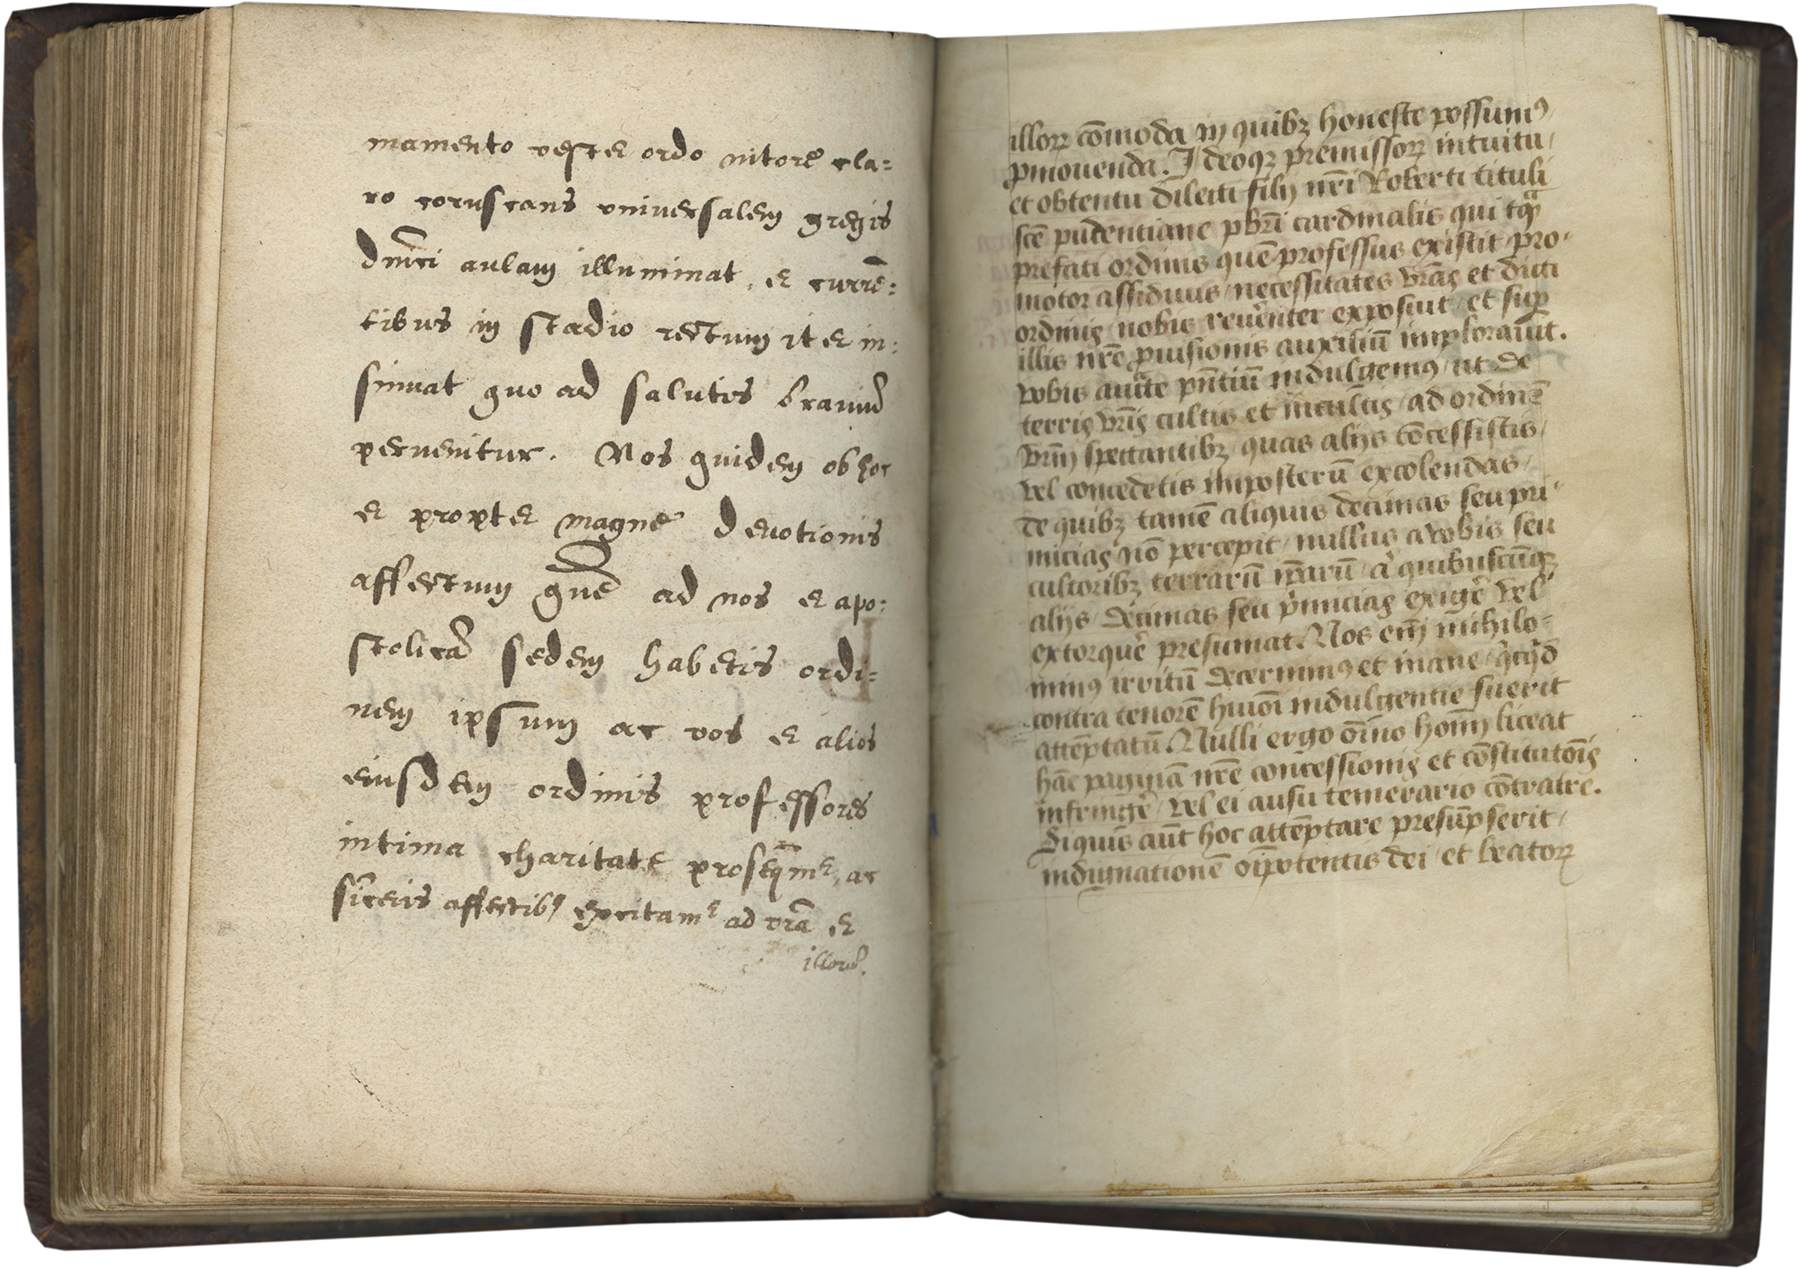 mamento vester ordo nitorẽ cla=
ro coruscans vniuersalem gregis
dñici aulam illuminat, et currẽ=
tibus in stadio rectum iter in=
sinuat quo ad salutis brauiũ
peruenitur. Nos quidem ob hoc
et propter magnę deuotionis
affectum quẽ ad nos et apo=
stolicã sedem habetis ordi=
nem ipsum ac vos et alios
eiusdem ordinis professores
intima charitate proseq̃mr, ac
sĩceris affectibꝰ excitamr ad vrã et
illorũ.
illoꝝ cõmoda in quibꝫ honeste possumꝰ
ꝓmouenda. Ideoqꝫ premissoꝝ intuitu/
et obtentu dilecti filij nr̃i Roberti tituli
scẽ pudentiane pbr̃i cardinalis qui tꝙ̃
prefati ordinis quẽ professus existit pro-
motor assiduus/necessitates vr̃as et dicti
ordinis nobis reuẽnter exposuit/et suꝑ
illis nr̃e ꝓuisionis auxiliũ implorauit.
vobis auc̃te pñtiũ indulgemꝰ/ut de
terris vr̃is cultis et incultis/ad ordinẽ
vr̃m spectantibꝫ/quas alijs cõcessistis/
vel concedetis imposterũ excolendas/
de quibꝫ tamẽ aliquis decimas seu pri-
micias nõ percepit/nullus a vobis seu
cultoribꝫ terrarũ ip̃arũ/a quibuscũqꝫ
alijs/decimas seu p̃micias exigẽ vel
extorquẽ presumat. Nos em̃ nichilo-
minꝰ irritũ decernimꝰ et inane/q̃cq̃d
contra tenorẽ huiõi indulgentie fuerit
attẽptatũ Nulli ergo õino hom̃ liceat
hãc paginã nr̃e concessionis et cõstitutõis
infringẽ/vel ei ausu temerario cõtraire.
Siquis aũt hoc attẽptare presũpserit/
indignationẽ om̃potentis dei/et beatoꝝ